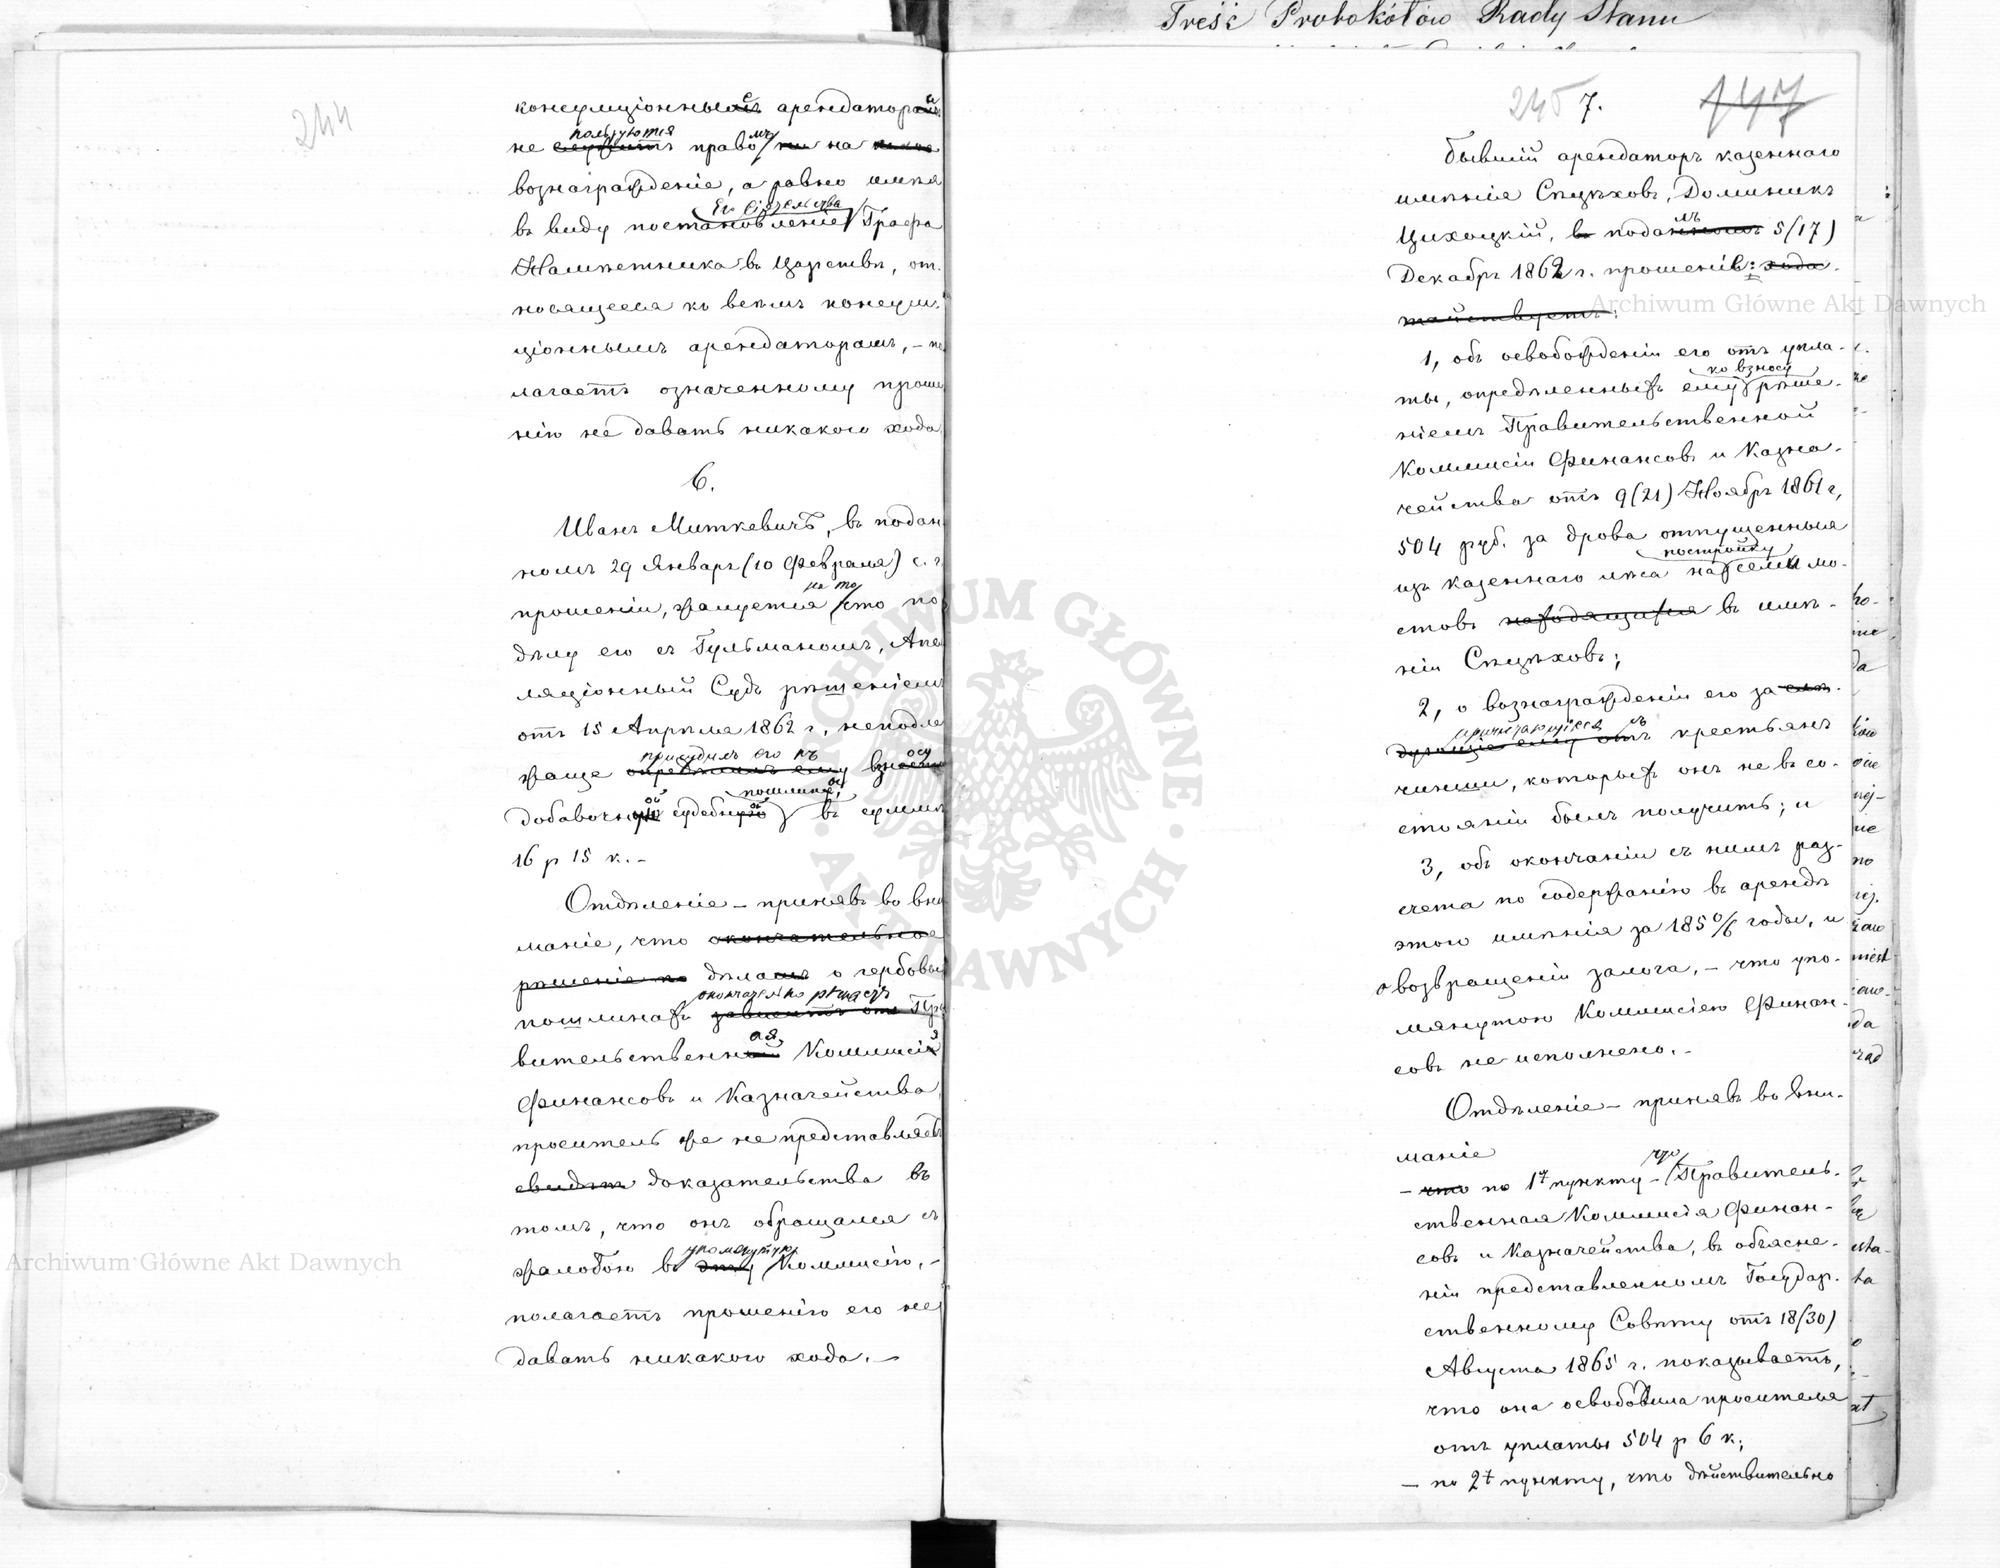 Treść Protokółów Rady Stanu
244
консумціонные арендаторы
не пользуются правомъ на
вознагражденіе, а равно имѣя
въ виду постановленіе Его Сіятельства Графа
Намѣстника въ Царствѣ, от-
носящееся ко всѣмъ консум-
ціоннымъ арендаторамъ, – по
лагаетъ означенному проше
нію не давать никакого хода
6.
Иванъ Миткевичъ, въ подан
номъ 29 Января (10 Февраля) с. г.
прошеніи, жалуется на то что по
дѣлу его съ Гульманомъ, Апел
ляціонный Судъ рѣшеніемъ
отъ 15 Апрѣля 1862 г, неподле
жаще присудилъ его къ взносу
добавочной судебной пошлины, въ суммѣ
16 р 15 к. –
Отдѣленіе – принявъ во вни
маніе, что окончательное
рѣшеніе по дѣламъ о гербовыхъ
пошлинахъ окончательно рѣшаетъ Пра
вительственная Коммисія
Финансовъ и Казначейства,
проситель же не представляетъ
доказательства въ
томъ, что онъ обращался съ
жалобою въ упомянутую Коммисію, –
полагаетъ прошенію его не
давать никакого хода. –
245 7. 147
Бывшій арендаторъ казеннаго
имѣнія Спцѣховъ, Доминикъ
Цихоцкій, въ поданномъ 5/(17)
Декабря 1862 г. прошеніи: хода-
тайствуетъ:
1, объ освобожденіи его отъ упла-
ты, опредѣленныхъ ему ко взносу рѣше-
ніемъ Правительственной
Коммисіи Финансовъ и Казна-
чейства отъ 9 (21) Ноября 1861 г,
504 руб. за дрова отпущенныя
изъ казеннаго лѣса на постройку семи мо-
стовъ находящихся въ имѣ-
ніи Спцѣховъ;
2, о вознагражденіи его за слѣ-
дующіе ему отъ крестьянъ
чинши, которыхъ онъ не въ со-
стояніи былъ получить; и
3, объ окончаніи съ нимъ раз-
счета по содержанію въ арендѣ
этого имѣнія за 1850/6 годы, и
о возвращеніи залога, – что упо-
мянутою Коммисіею Финан-
совъ не исполнено. –
Отдѣленіе – принявъ во вни-
маніе
– что по 1у пункту – что Правитель-
ственная Коммисія Финан-
совъ и Казначейства, въ объясне-
ніи представленномъ Государ-
ственному Совѣту отъ 18/(30)
Августа 1865 г. показываетъ,
что она освободила просителя
отъ уплаты 504 р 6 к;
– по 2у пункту, что дѣйствительно
Archiwum Główne Akt Dawnych
Archiwum Główne Akt Dawnych
ARCHIWUM GŁÓWNE AKT DAWNYCH